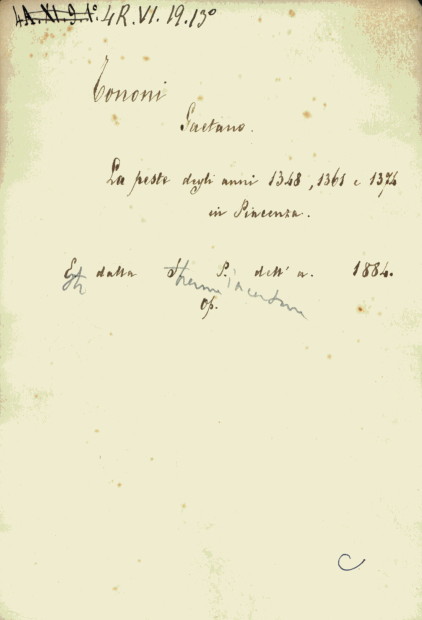 4A.XI.9.1° 4R.VI.19.13°
Tononi
Gaetano.
La peste degli anni 1348, 1361 e 1374
in Piacenza.
dalla P. dell' a. 1884.
Op.
C